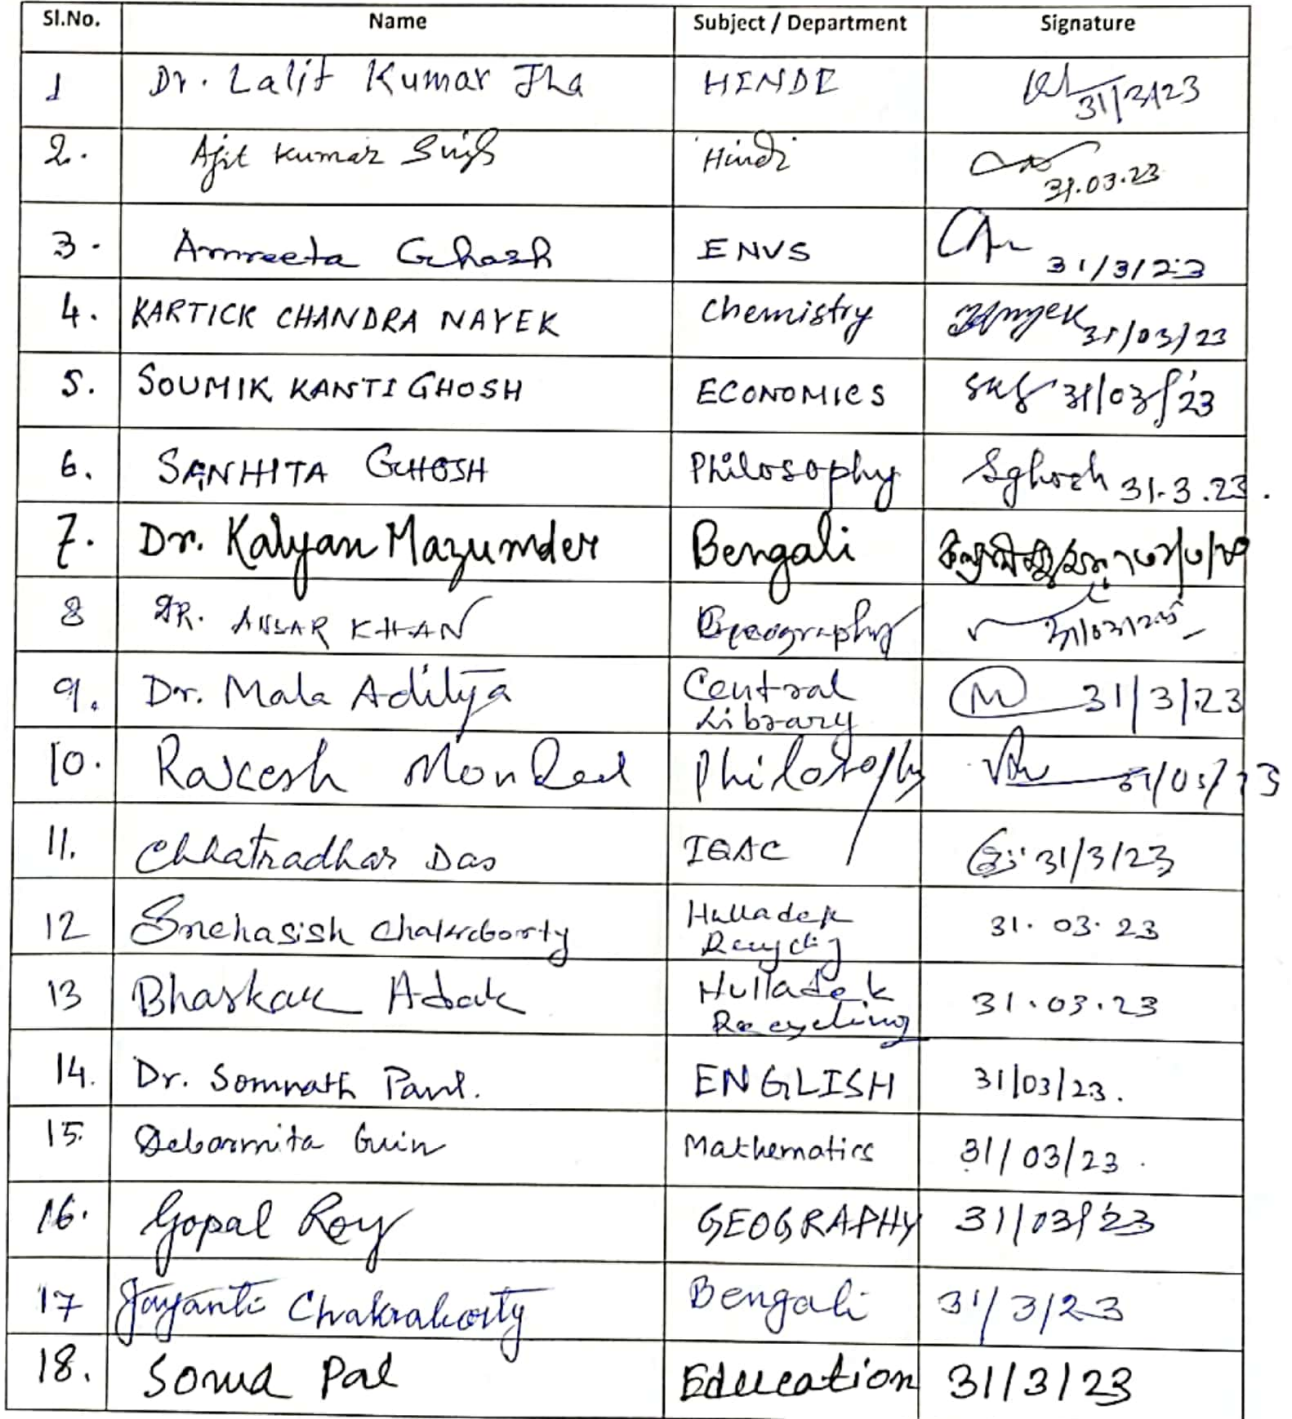 Sl.No. Name Subject / Department Signature
1 Dr. Lalit Kumar Jha HINDI 31/3/23
2. Ajit Kumar Singh Hindi 31.03.23
3. Amreeta Ghosh ENVS 31/3/23
4. KARTICK CHANDRA NAYEK Chemistry 31/03/23
5. SOUMIK KANTI GHOSH ECONOMICS SKG 31/03/23
6. SANHITA GHOSH Philosophy SGhosh 31.3.23.
7. Dr. Kalyan Mazumder Bengali
8 DR. ANSAR KHAN Geography 31/03/23
9. Dr. Mala Aditya Central 31/3/23
Library
10. Rakesh Mondal Philosophy 31/03/23
11. Chhatradhar Das IQAC 31/3/23
12 Snehasish Chakroborty Hulladek 31.03.23
Recycling
13 Bhaskar Adak Hulladek 31.03.23
Recycling
14. Dr. Somnath Paul. ENGLISH 31/03/23.
15. Debasmita Guin Mathematics 31/03/23.
16. Gopal Roy GEOGRAPHY 31/03/23
17 Jayanti Chakraborty Bengali 31/3/23
18. Soma Pal Education 31/3/23